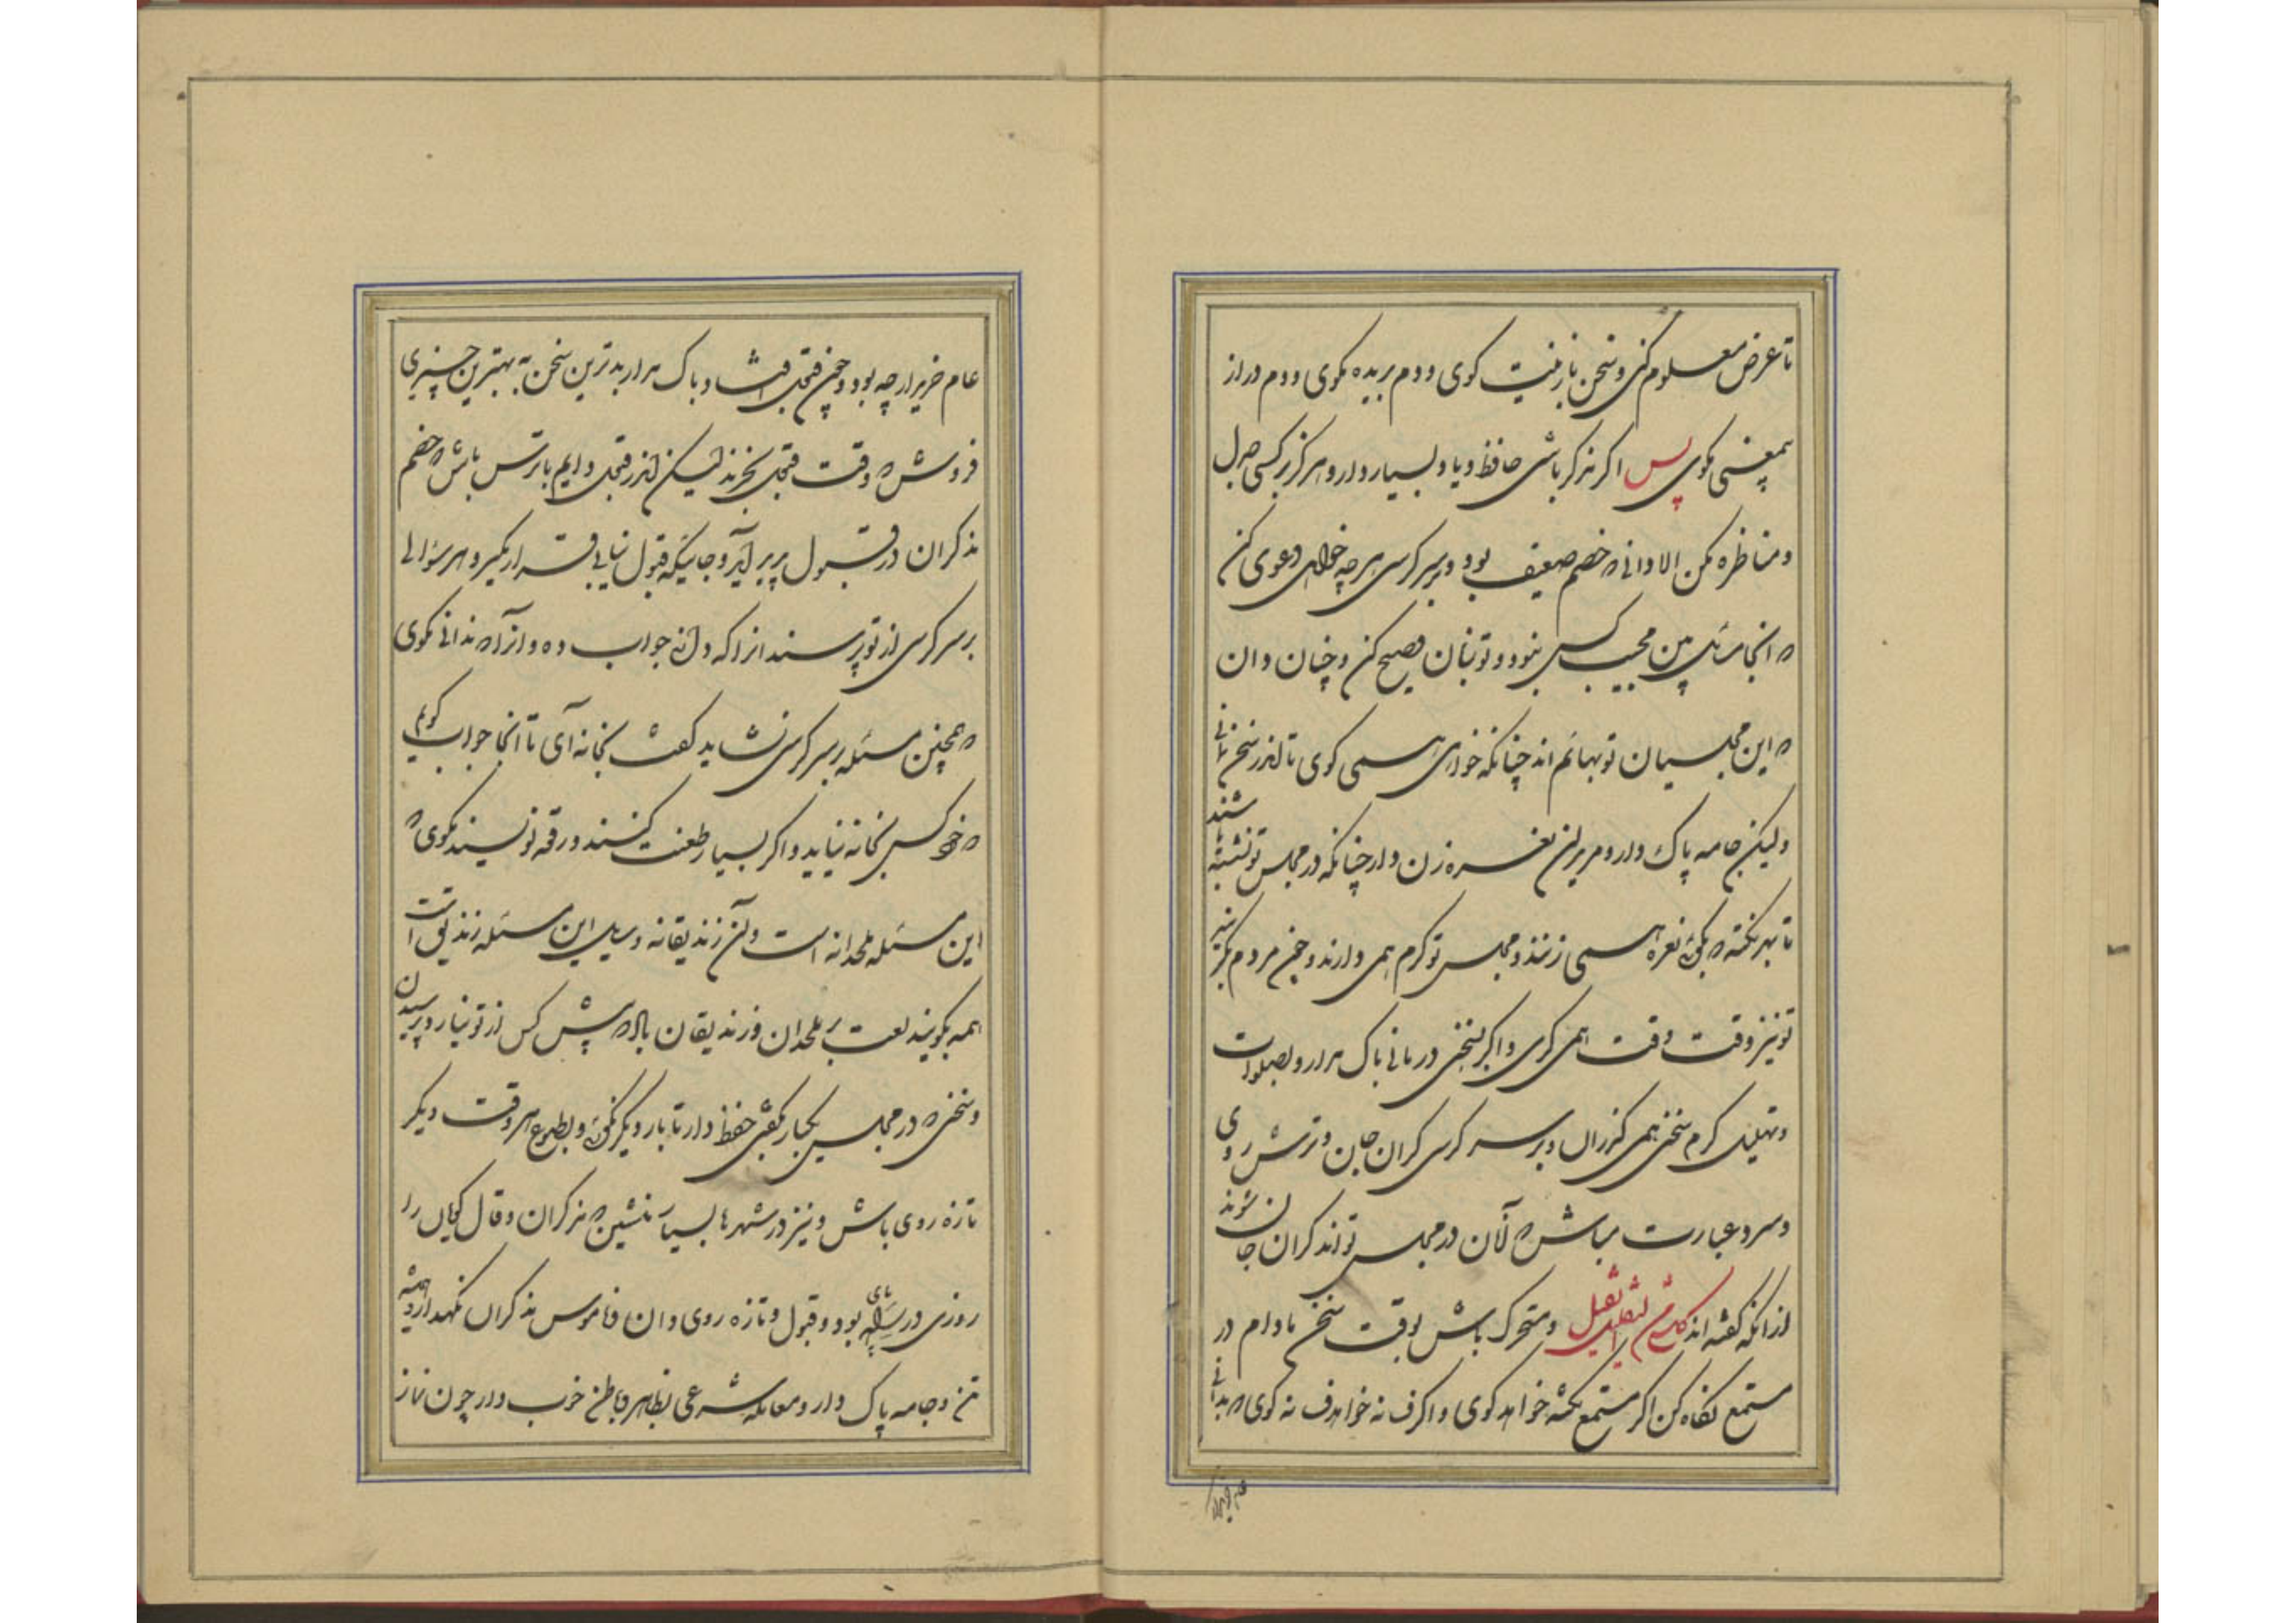 تا عرض معلوم کنی و سخن بازنیت کوی و دم بریده مکوی و دم دراز
بیمعنی مکوی پس اکر مذکر باشی حافظ و یاد بسیار دار و هرکز بر کسی جدل
و مناظره مکن الا دانی که خصم ضعیف بود و بر سر کرسی هر چه خواهی دعوی کن
که انجا سایل پس مجیب کسی نبود و تو زبان فصیح کن و چنان دان
که این مجلسیان تو بهائم اند چنانکه خواهی همی کوی تا اندر سخن نمانی
ولیکن جامه پاک دار و مریدان نعره زن دار چنانکه در مجلس تو نشسته باشند
تا بهر نکته که بکوئی نعره همی زنند و مجلس تو کرم همی دارند و چون مردم بکریند
تو نیز وقت وقت همی کری و اکر بسخنی در مانی باک مدار و بصلوات
و تهلیل کرم سخن همی کذران و بر سر کرسی کران جان و ترش روی
و سرد عبارت مباش که آنان در مجلس تو اند کران جان شوند
از انکه کفته اند کل شئ من الثقیل ثقیل و متحرک باش بوقت سخن مادام در
مستمع نکاه کن اکر مستمع نکته خواهد کوی و اکر فسانه خواهد فسانه کوی که بدانی
عام خریدار چه بود و چون قبول افتاد باک مدار بدترین سخن به بهترین چیزی
فروش که وقت قبول بخرند لیکن اندر قبول دایم با ترس باش که خصم
مذکران در قبول پدید آید و جائیکه قبول نیابی قرار مکیر و هر سؤالی
بر سر کرسی از تو پرسند انرا که دانی جواب ده و انرا که ندانی بکوی
که همچنین مسئله بر سر کرسی نشاید کفت بخانه آی تا انجا جواب کویم
که خود کسی بخانه نیاید و اکر بسیار طعنت کنند و رقعه نویسند بکوی که
این مسئله ملحدانه است و آن زندیقانه و سایل این مسئله زندیق است
همه بکویند لعنت بر ملحدان و زندیقان باد که پیش کس از تو نیارد پرسیدن
و سخنی که در مجلس یکبار بکفتی حفظ دار تا بار دیکر نکوئی و بطبع هر وقت دیکر
تازه روی باش و نیز در شهرها بسیار منشین که مذکران و فال کویان را
روزی در پای بود و قبول و تازه روی دان و ناموس مذکران نکهدار و همیشه
تن و جامه پاک دار و معامله شرعی بظاهر و باطن خوب دار چون نماز